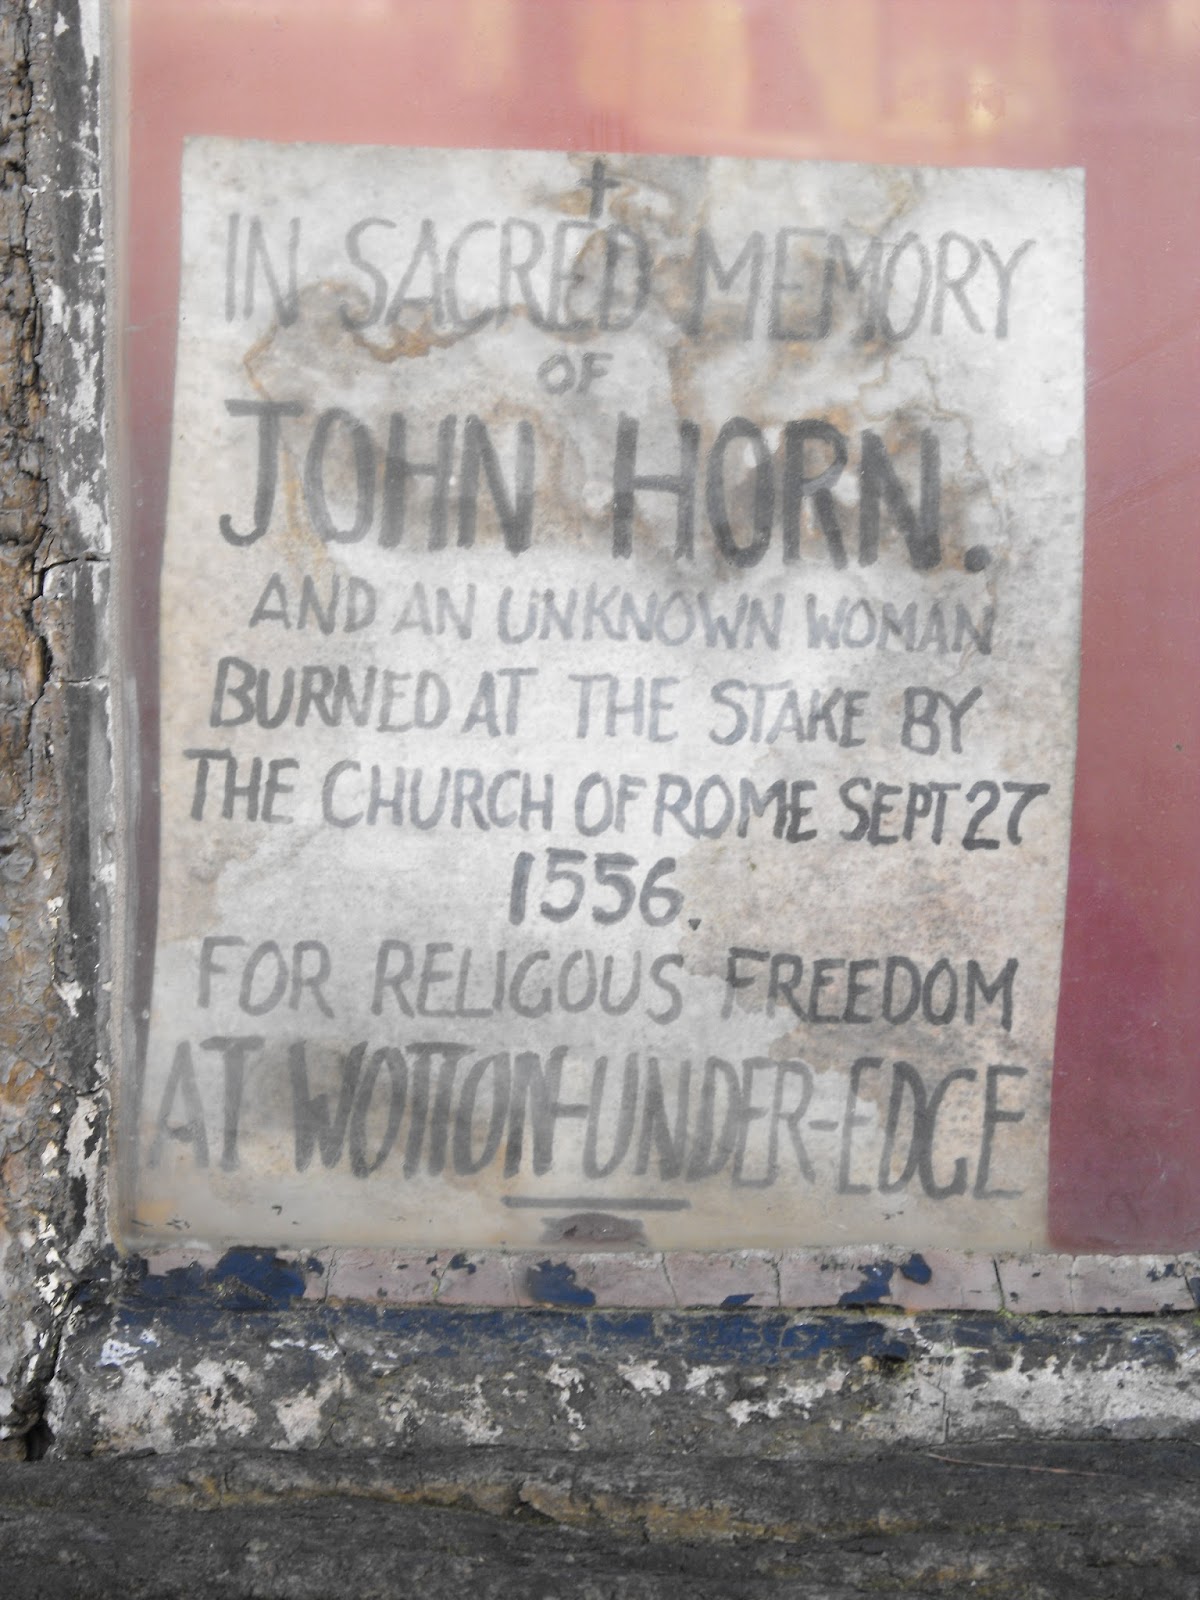 IN SACRED MEMORY
OF
JOHN HORN.
AND AN UNKNOWN WOMAN
BURNED AT THE STAKE BY
THE CHURCH OF ROME SEPT 27
1556.
FOR RELIGOUS FREEDOM
AT WOTTON-UNDER-EDGE